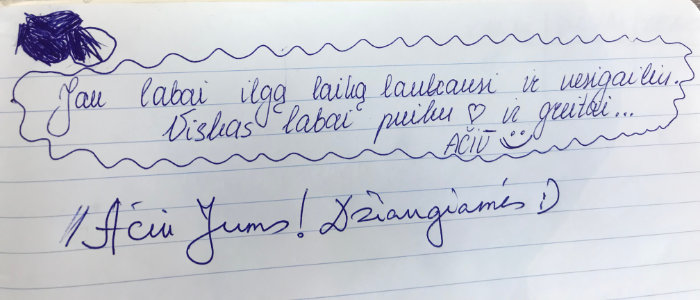 Jau labai ilgą laiką lankausi ir nesigailiu..
Viskas labai puiku ♡ ir greitai...
AČIŪ :)
Ačiū Jums! Džiaugiamės :)